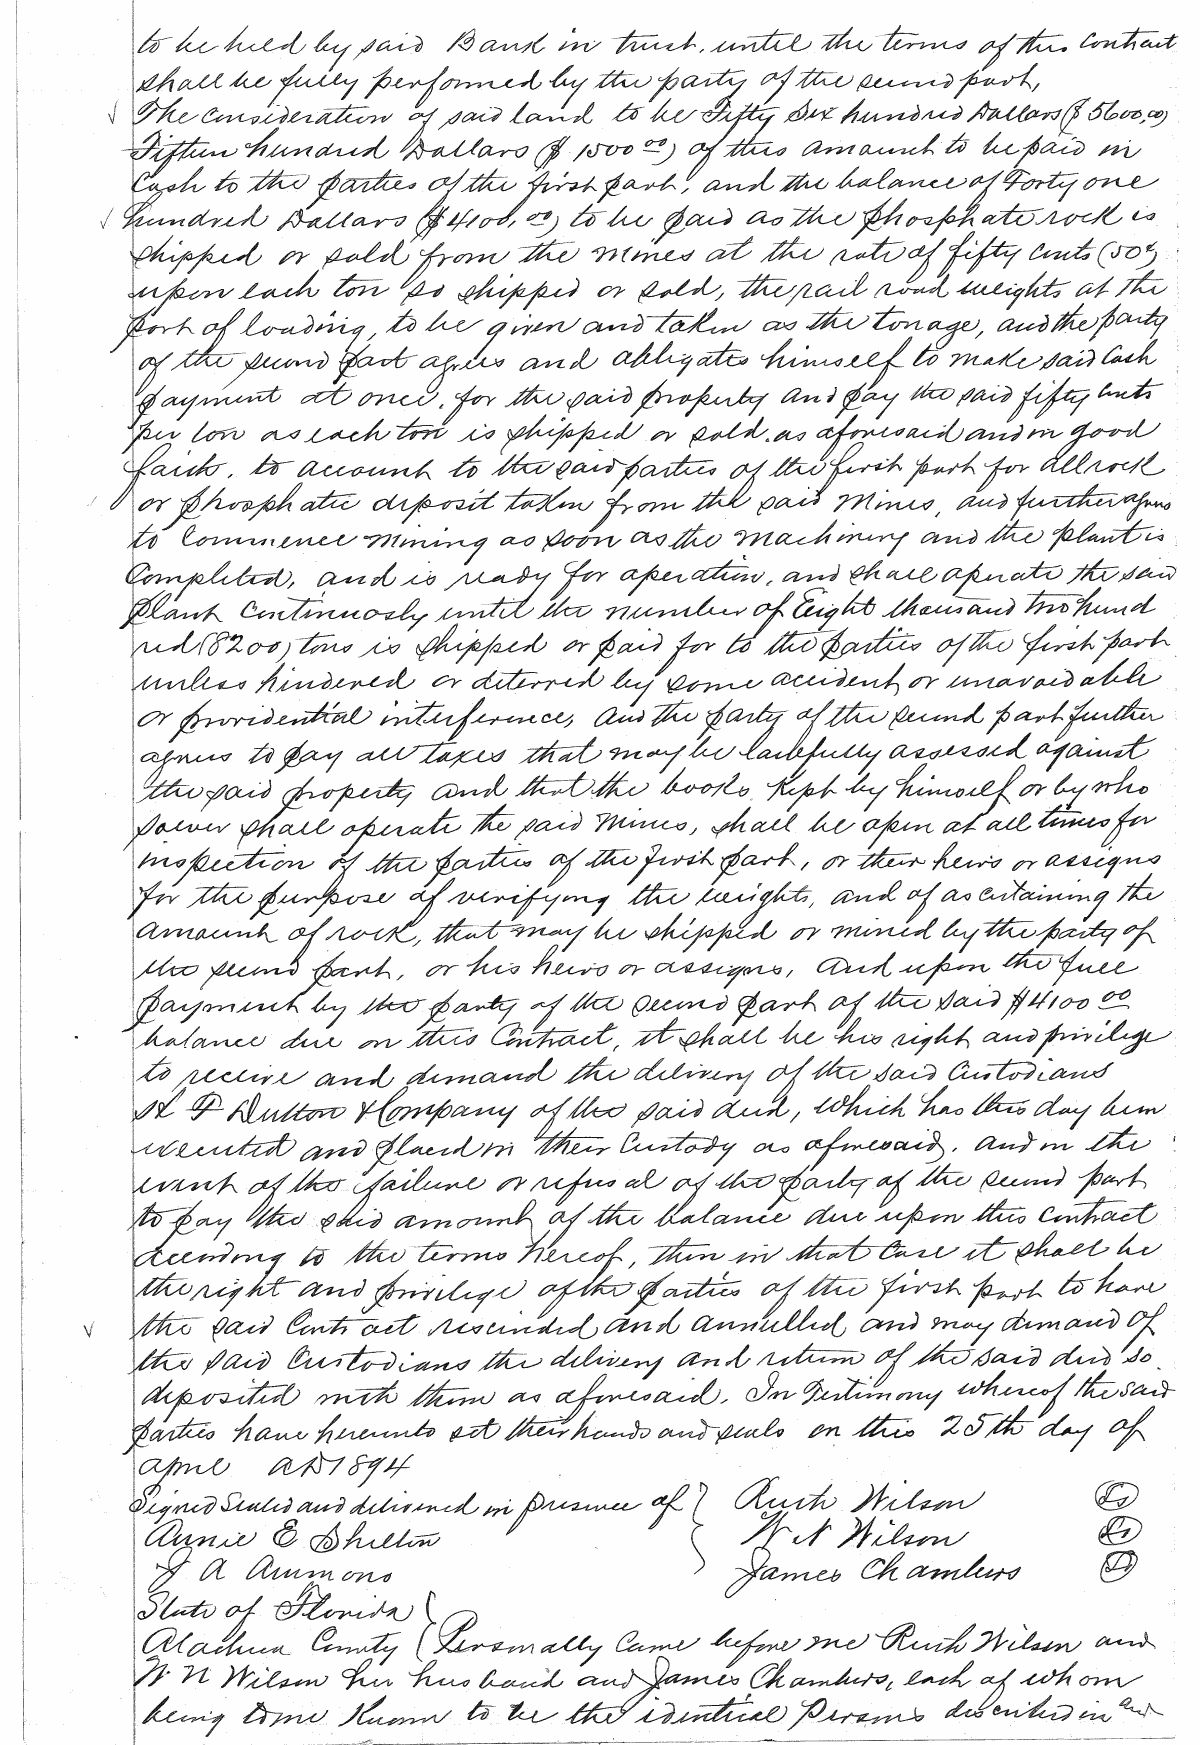 to be held by said Bank in trust. until the terms of this Contract
shall be fully performed by the party of the second part,
The consideration of said land to be Fifty Six hundred Dollars ($5600,00)
Fifteen hundred Dollars ($1500 00) of this amount to be paid in
Cash to the parties of the first part, and the balance of Forty one
hundred Dollars ($4100,00) to be paid as the phosphate rock is
shipped or sold from the mines at the rate of fifty cents (50c)
upon each ton so shipped or sold, the rail road weights at the
port of loading, to be given and taken as the tonage, and the party
of the second part agrees and obligates himself to make said Cash
payment at once. for the said property and pay the said fifty cents
per ton as each ton is shipped or sold. as aforesaid and in good
faith. to account to the said parties of the first part for all rock
or phosphatic deposit taken from the said Mines, and further agrees
to Commence mining as soon as the machinery and the plant is
Completed, and is ready for operation, and shall operate the said
plant Continuosly until the number of Eight thousand two hund
red (8200) tons is shipped or paid for to the parties of the first part
unless hindered or deterred by some accident or unavoidable
or providential interference, and the party of the second part further
agrees to pay all taxes that may be lawfully assessed against
the said property and that the books Kept by himself or by who
soever shall operate the said mines, shall be open at all times for
inspection of the parties of the first part, or their heirs or assigns
for the purpose of verifying the weights, and of ascertaining the
amount of rock, that may be shipped or mined by the party of
the second part, or his heirs or assigns, and upon the full
payment by the party of the second part of the said $4100 00
balance due on this Contract, it shall be his right and privilege
to receive and demand the delivery of the said Custodians
H F Dutton & Company of the said deed, which has this day been
executed and placed in their Custody as aforesaid. and in the
event of the failure or refusal of the party of the second part
to pay the said amount of the balance due upon this contract
according to the terms hereof, then in that Case it shall be
the right and privilege of the parties of the first part to have
the said Contract rescinded and annulled and may demand of
the said Custodians the delivery and return of the said deed so
deposited with them as aforesaid. In Testimony whereof the said
parties have hereunto set their hands and seals on this 25th day of
april AD 1894
Signed Sealed and delivered in presence of } Ruth Wilson Ls
Annie E Shelton W N Wilson Ls
J A Ammons James Chambers Ls
State of Florida
Alachua County Personally Came before me Ruth Wilson and
W N Wilson her husband and James Chambers, each of whom
being to me Known to be the identical Persons described in and